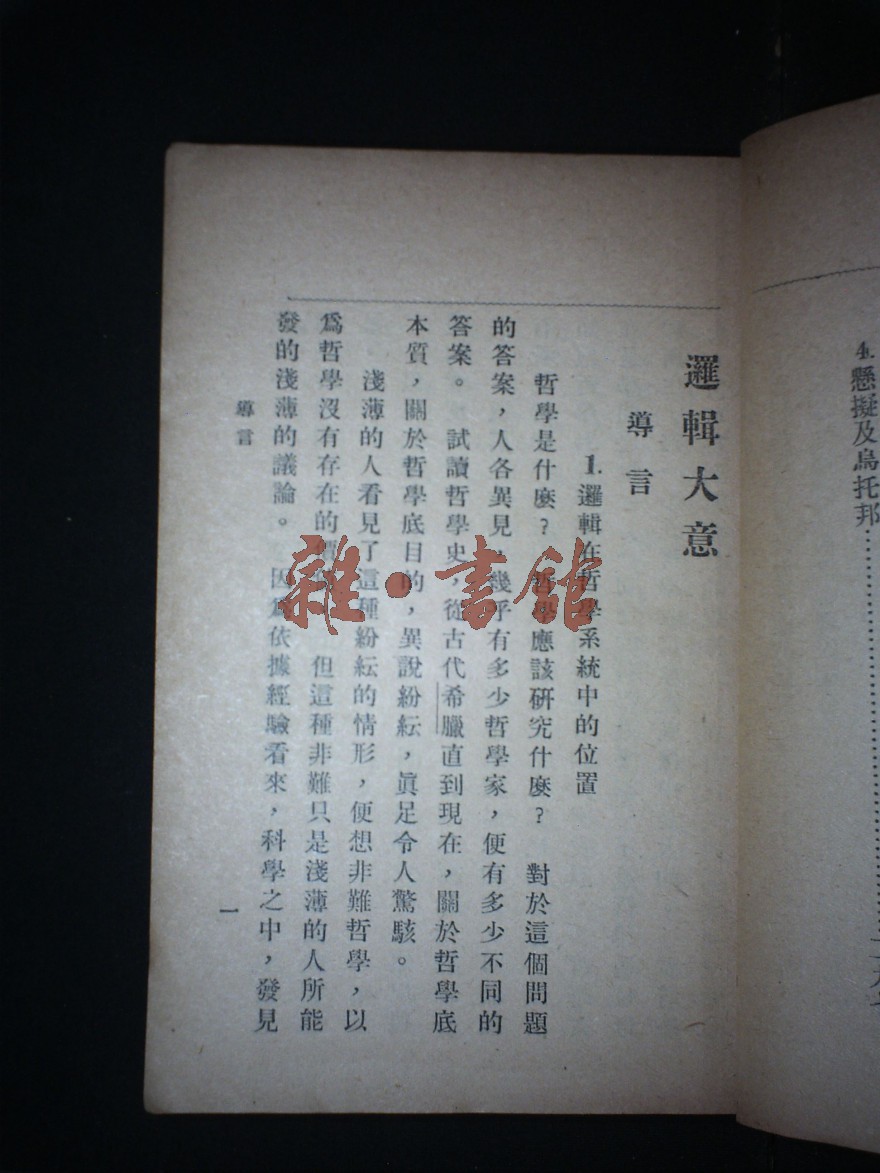 4. 懸擬及烏托邦
邏輯大意
導言
1. 邏輯在哲學系統中的位置
哲學是什麼? 哲學應該研究什麼? 對於這個問題
的答案,人各異見,幾乎有多少哲學家,便有多少不同的
答案。 試讀哲學史,從古代希臘直到現在,關於哲學底
本質,關於哲學底目的,異說紛紜,眞足令人驚駭。
淺薄的人看見了這種紛紜的情形,便想非難哲學,以
爲哲學沒有存在的價 但這種非難只是淺薄的人所能
發的淺薄的議論。 因爲依據經驗看來,科學之中,發見
導言
一
雜·書館